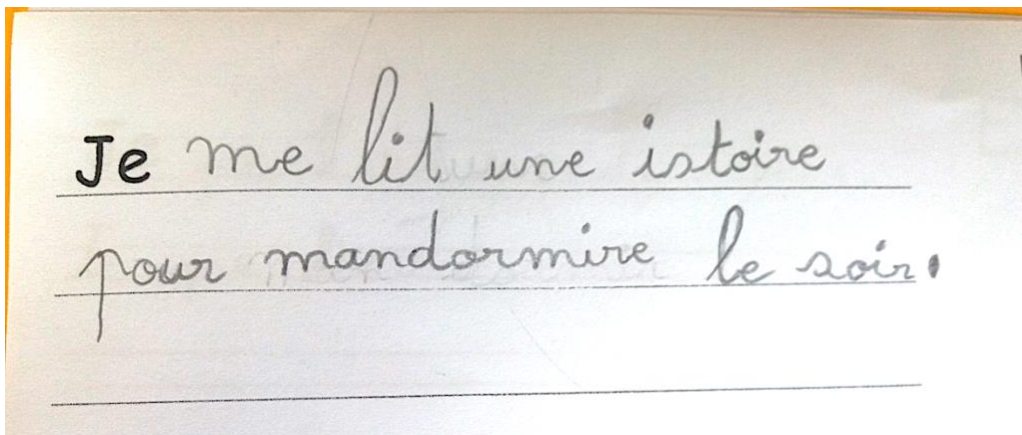 Je me lit une istoire
pour mandormire le soir.